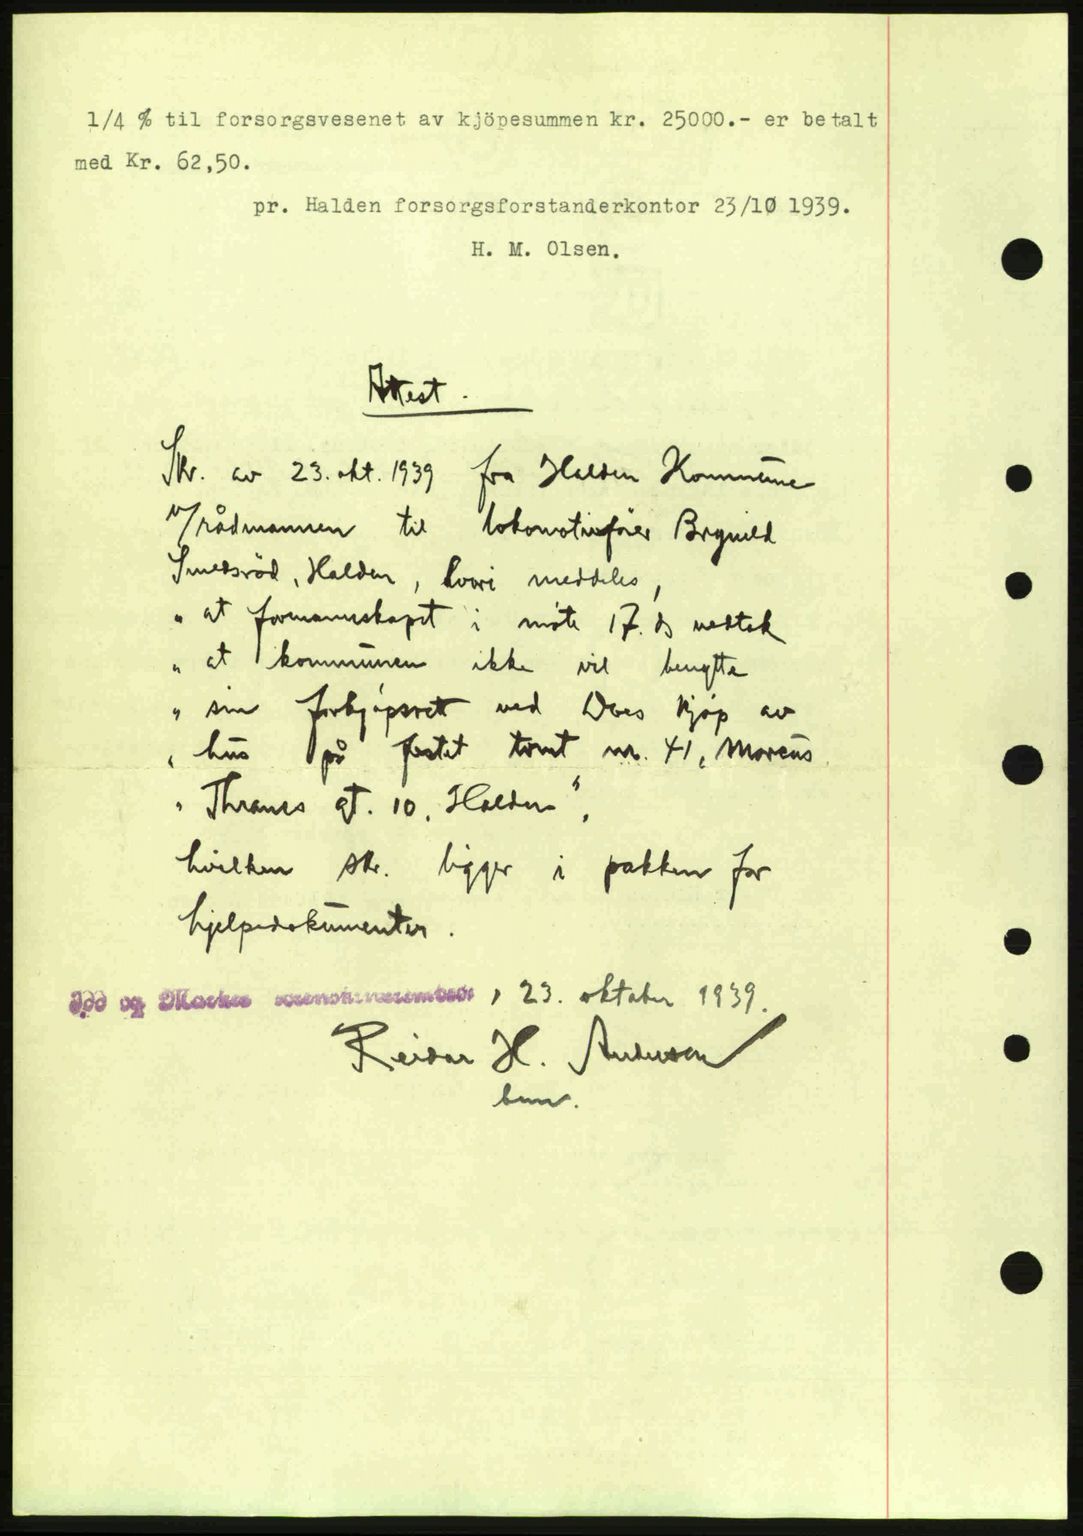 1/4 % til forsorgsvesenet av kjöpesummen kr. 25000.- er betalt
med Kr. 62,50.
pr. Halden forsorgsforstanderkontor 23/10 1939.
H. M. Olsen.
Attest.
Skr. av 23. okt. 1939 fra Halden Kommune
v/rådmannen til lokomotivfører Brynild
Smedsröd, Halden, hvori meddeles,
" at formannskapet i møte 17. ds vedtok
" at kommunen ikke vil benytte
" sin forkjøpsrett ved Deres kjøp av
" hus på festet tomt nr. 41, Marcus
" Thranes gt. 10, Halden",
hvilken skr. ligger i pakken for
hjelpedokumenter.
Idd og Marker sorenskriverembede, 23. oktober 1939.
Reidar H. Andersen
bem.